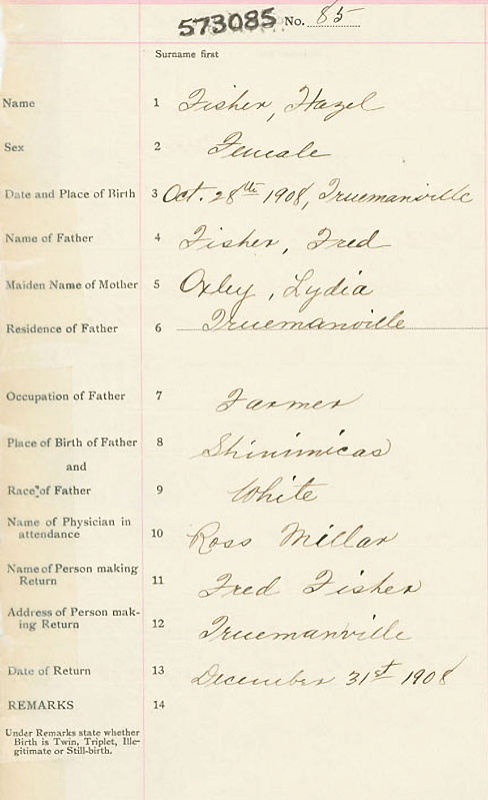 573085 No. 85
Surname first
Name 1 Fisher, Hazel
Sex 2 Female
Date and Place of Birth 3 Oct. 28th 1908, Truemanville
Name of Father 4 Fisher, Fred
Maiden Name of Mother 5 Oxley, Lydia
Residence of Father 6 Truemanville
Occupation of Father 7 Farmer
Place of Birth of Father 8 Shinimicas
and
Race of Father 9 White
Name of Physician in
attendance 10 Ross Millar
Name of Person making
Return 11 Fred Fisher
Address of Person mak-
ing Return 12 Truemanville
Date of Return 13 December 31st 1908
REMARKS 14
Under Remarks state whether
Birth is Twin, Triplet, Ille-
gitimate or Still-birth.